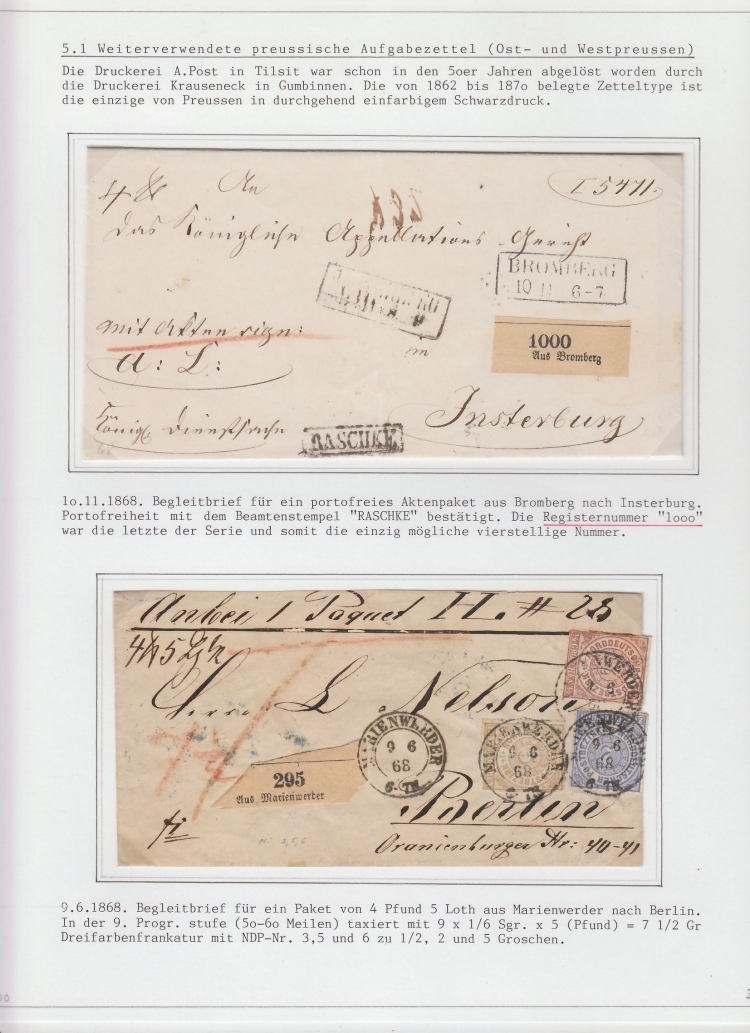 5.1 Weiterverwendete preussische Aufgabezettel (Ost- und Westpreussen)
Die Druckerei A.Post in Tilsit war schon in den 5oer Jahren abgelöst worden durch
die Druckerei Krauseneck in Gumbinnen. Die von 1862 bis 187o belegte Zetteltype ist
die einzige von Preussen in durchgehend einfarbigem Schwarzdruck.
An
I 5471.
Das Königliche Appellations-Gericht
BROMBERG
10 11 6-7
mit Akten sign:
1000
Aus Bromberg
A: L:
in
Insterburg
Königl. Dienstsache
RASCHKE
1o.11.1868. Begleitbrief für ein portofreies Aktenpaket aus Bromberg nach Insterburg.
Portofreiheit mit dem Beamtenstempel "RASCHKE" bestätigt. Die Registernummer "1ooo"
war die letzte der Serie und somit die einzig mögliche vierstellige Nummer.
Anbei 1 Paquet H. # 28
NORDDEUTSCHER
Herrn L Nelson
MARIENWERDER
9 6
68
6-7N
MARIENWERDER
9 6
68
6-7N
MARIENWERDER
9 6
68
6-7N
295
Aus Marienwerder
Berlin
Oranienburger Str: 40-41
9.6.1868. Begleitbrief für ein Paket von 4 Pfund 5 Loth aus Marienwerder nach Berlin.
In der 9. Progr. stufe (5o-6o Meilen) taxiert mit 9 x 1/6 Sgr. x 5 (Pfund) = 7 1/2 Gr
Dreifarbenfrankatur mit NDP-Nr. 3,5 und 6 zu 1/2, 2 und 5 Groschen.